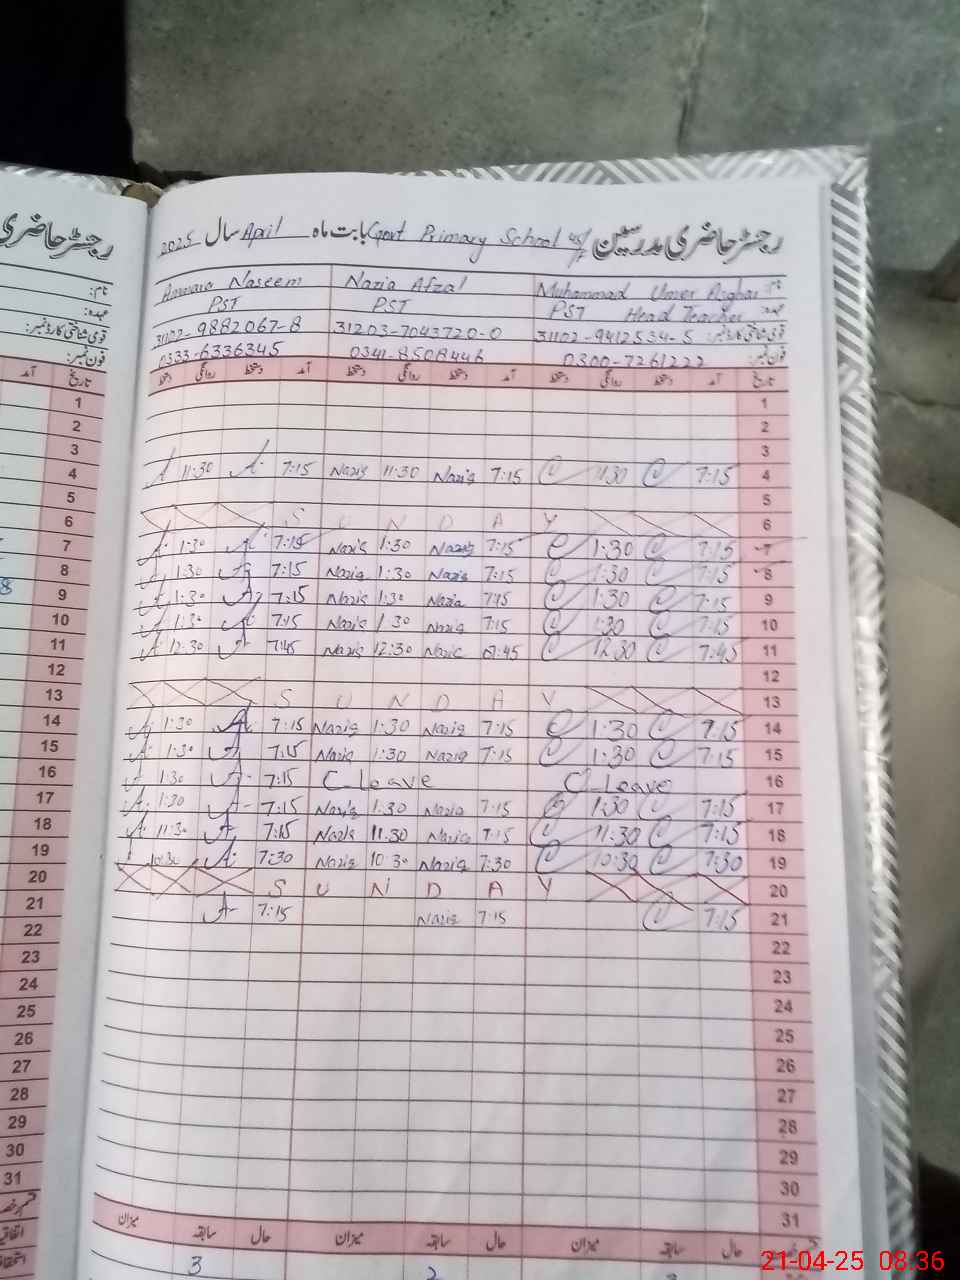 رجسٹر حاضری مدرسین Govt Primary School بابت ماہ April سال 2025
رجسٹر حاضری
Naseem Nazia Afzal Muhammad Umer Asghar نام:
PST PST PST Head Teacher عہدہ:
31102-9882067-8 31203-7043720-0 31102-9412534-5 قومی شناختی کارڈ نمبر:
0333-6336345 0341-8508446 0300-7261222 فون نمبر:
دستخط روانگی دستخط آمد دستخط روانگی دستخط آمد دستخط روانگی دستخط آمد تاریخ
1
2
3
A 11:30 A 7:15 Nazia 11:30 Nazia 7:15 11:30 7:15 4
5
S U N D A Y 6
A 1:30 A 7:15 Nazia 1:30 Nazia 7:15 1:30 7:15 7
A 1:30 A 7:15 Nazia 1:30 Nazia 7:15 1:30 7:15 8
A 1:30 A 7:15 Nazia 1:30 Nazia 7:15 1:30 7:15 9
A 1:30 A 7:15 Nazia 1:30 Nazia 7:15 1:30 7:15 10
A 12:30 A 7:45 Nazia 12:30 Nazia 7:45 12:30 7:45 11
12
S U N D A Y 13
A 1:30 A 7:15 Nazia 1:30 Nazia 7:15 1:30 7:15 14
A 1:30 A 7:15 Nazia 1:30 Nazia 7:15 1:30 7:15 15
A 1:30 A 7:15 C Leave C Leave 16
A 1:30 A 7:15 Nazia 1:30 Nazia 7:15 1:30 7:15 17
A 11:30 A 7:15 Nazia 11:30 Nazia 7:15 11:30 7:15 18
10:30 A 7:30 Nazia 10:30 Nazia 7:30 10:30 7:30 19
S U N D A Y 20
A 7:15 Nazia 7:15 7:15 21
22
23
24
25
26
27
28
29
30
31
میزان سابقہ حال میزان سابقہ حال میزان سابقہ حال
3 2
نام:
عہدہ:
قومی شناختی کارڈ نمبر:
فون نمبر:
آمد تاریخ
1
2
3
4
5
6
7
8
9
10
11
12
13
14
15
16
17
18
19
20
21
22
23
24
25
26
27
28
29
30
31
21-04-25 08:36